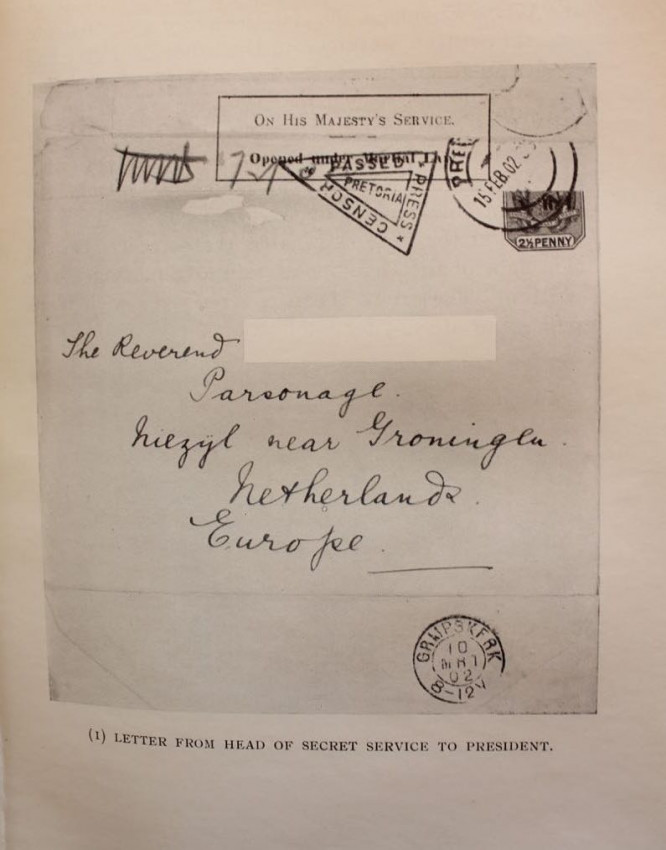 On His Majesty's Service.
Opened under Martial La
PASSED PRESS CENSOR
PRETORIA
PRE
15 FEB 02
2½ PENNY
The Reverend
Parsonage.
Niezyl near Groningen.
Netherlands.
Europe.
GRIJPSKERK
10
MRT
02
8-12V
(1) LETTER FROM HEAD OF SECRET SERVICE TO PRESIDENT.